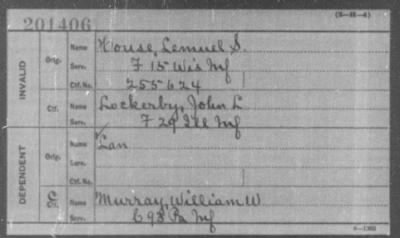 201406
(3—48—4)
INVALID
Orig. Name House, Lemuel S.
Serv. F 15 Wis Inf
Ctf. No. 255624
Ctf. Name Lockerby, John L
Serv. F 29 Ill Inf
DEPENDENT
Orig. Name Lan
Serv.
Ctf. No.
C. Name Murray, William W
Serv. C 98 Pa Inf
6—1302